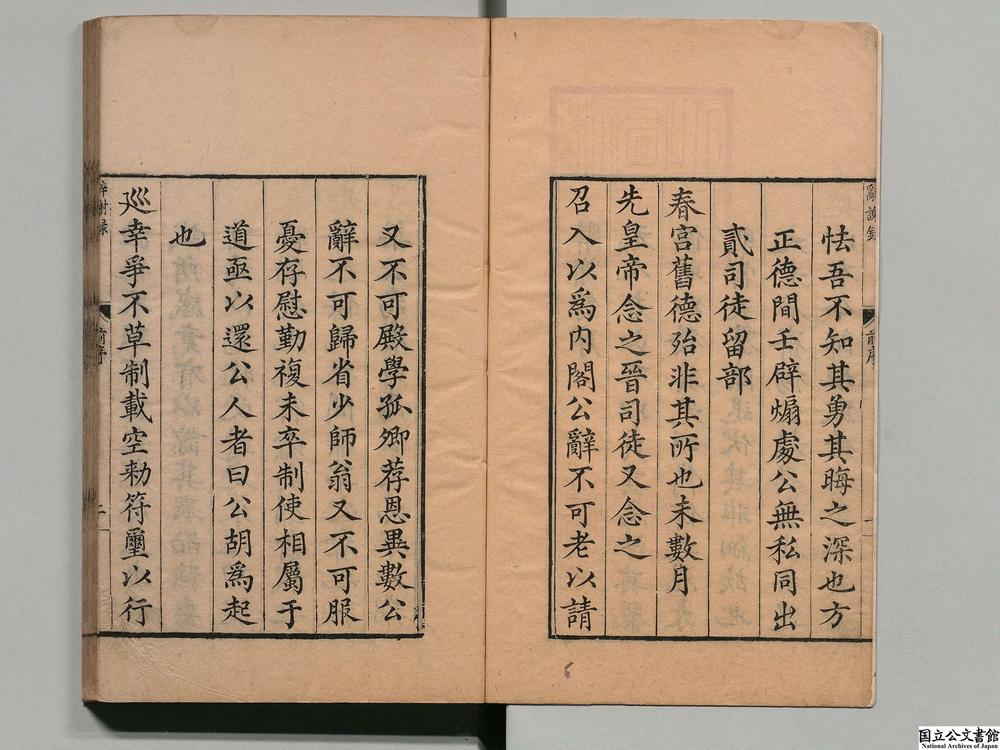 怯吾不知其勇其晦之深也方
正德間壬辟煽處公無私同出
貳司徒留部
春宮舊德殆非其所也未數月
先皇帝念之晉司徒又念之
召入以爲內閣公辭不可老以請
又不可殿學孤卿荐恩異數公
辭不可歸省少師翁又不可服
憂存慰勤複未卒制使相屬于
道亟以還公人者曰公胡爲起
也
巡幸爭不草制載空勑符璽以行
辭謝錄
前序
一
辭謝錄
前序
二
国立公文書館
National Archives of Japan